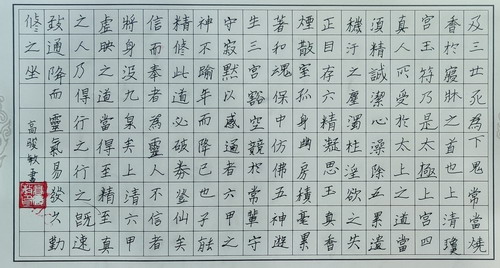 及三世死為下鬼常燒
香於寢牀之首也上清瓊
宮玉符乃是太極上宮四
真人所受於太上之道當
須精誠潔心澡除五累遺
機汙之塵濁杜淫欲之失
正目存六精凝思玉真香
煙散室孤身幽房積毫累
著和魂保空中仿佛五神遊
生三宮豁空競於常輩守
守寂默以感通者六甲之
神不踰年而降己也子能
精修此道必破券登仙矣
信而奉者皐為靈人不信者
將身沒九泉矣上清六甲
虛映之道當得至精至真
之人乃得行之行之既速
致通降而靈氣易發久勤
修之坐
高駿敏書